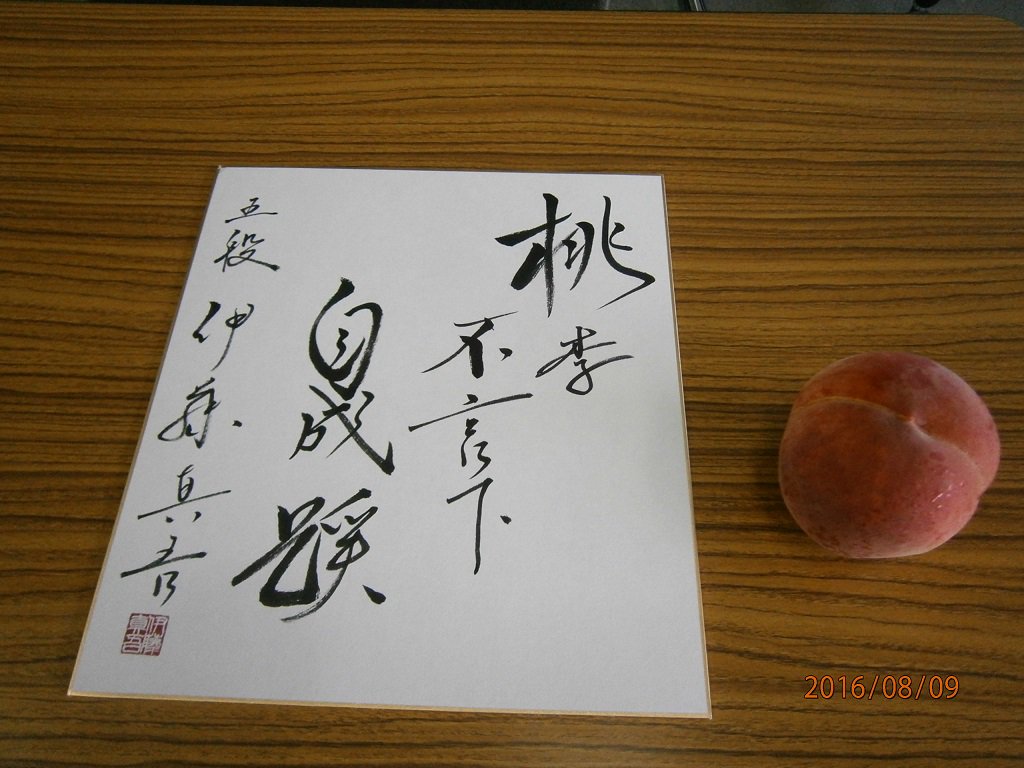 桃李
不言下
自成蹊
五段 伊藤真吾
伊藤真吾
2016/08/09